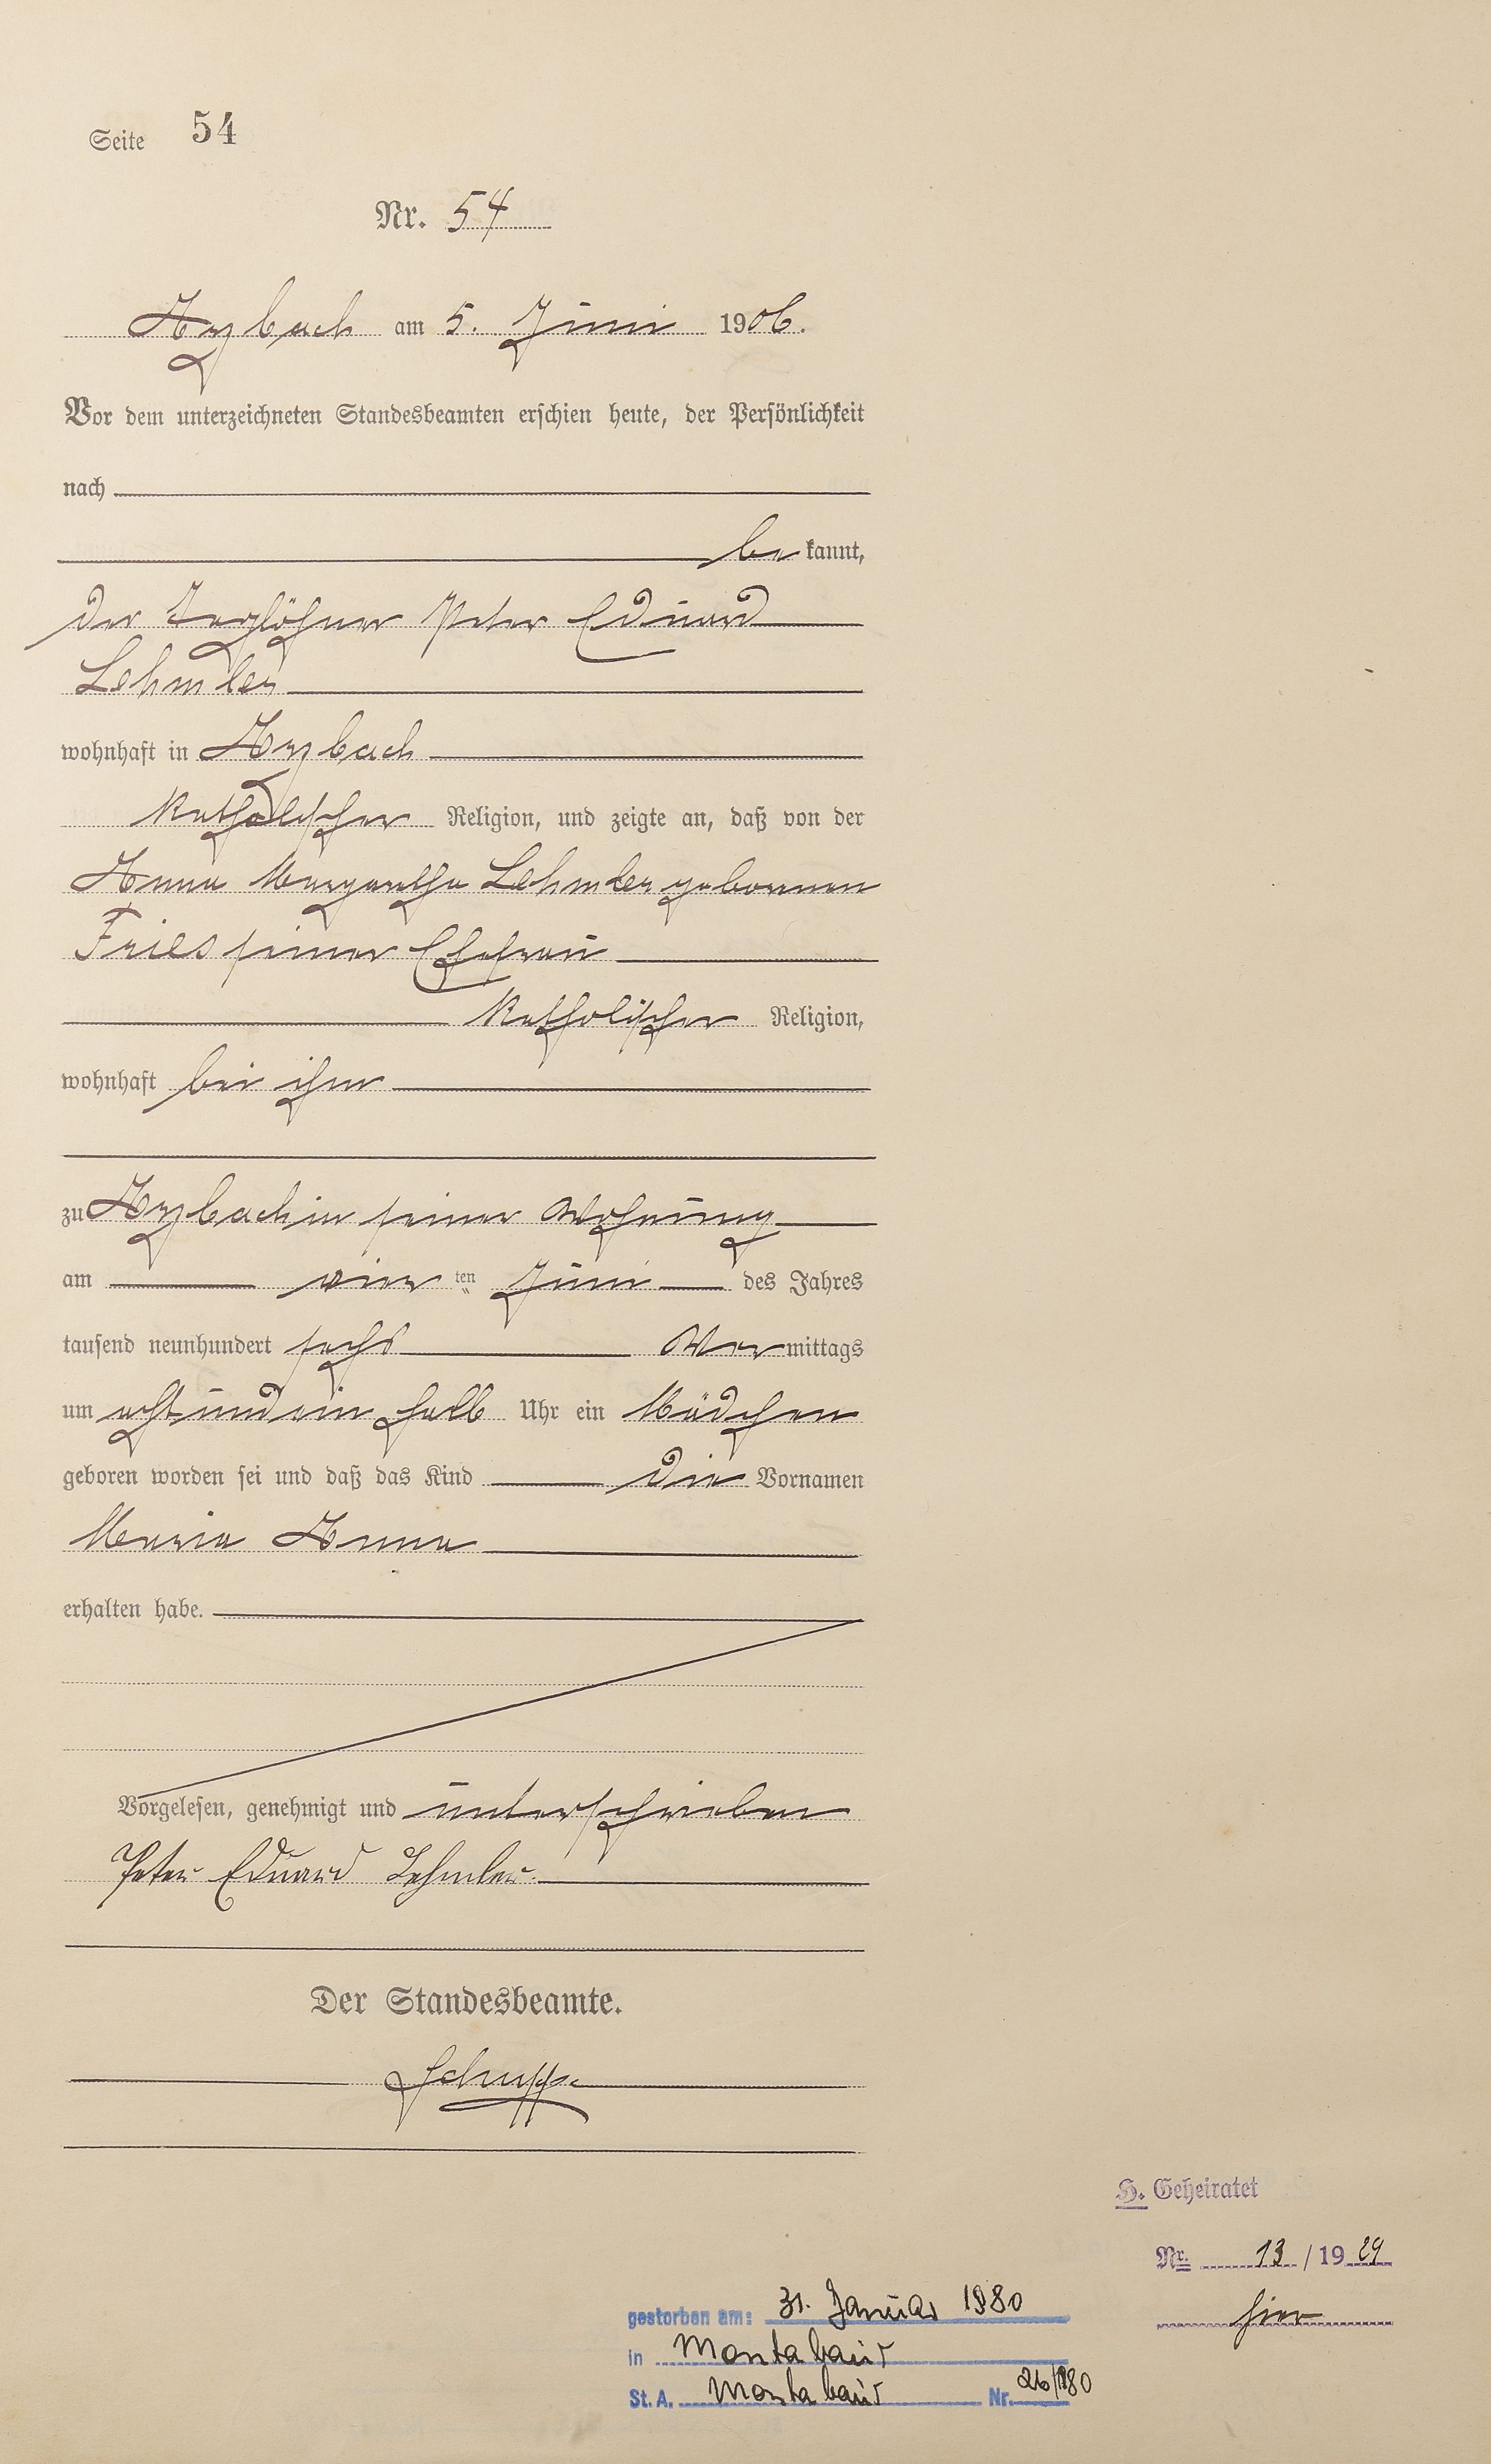 Seite 54
Nr. 54
Arzbach am 5. Juni 1906.
Vor dem unterzeichneten Standesbeamten erschien heute, der Persönlichkeit
nach
be kannt,
der Taglöhner Peter Eduard
Lehmler
wohnhaft in Arzbach
katholischer Religion, und zeigte an, daß von der
Anna Margaretha Lehmler geborenen
Fries seiner Ehefrau
katholischer Religion,
wohnhaft bei ihm
zu Arzbach in seiner Wohnung
am vier ten Juni des Jahres
tausend neunhundert sechs Vor mittags
um acht und ein halb Uhr ein Mädchen
geboren worden sei und daß das Kind die Vornamen
Maria Anna
erhalten habe.
Vorgelesen, genehmigt und unterschrieben
Peter Eduard Lehmler.
Der Standesbeamte.
Schupp
H. Geheiratet
Nr. 13 / 1929
hier
gestorben am: 31. Januar 1980
in Montabaur
St. A. Montabaur Nr. 26/1980